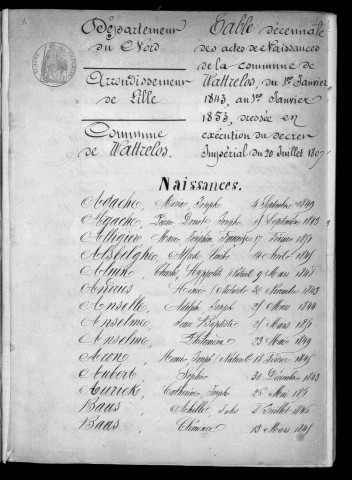 Département
du Nord
Arrondissement
de Lille
Commune
de Wattrelos.
Table décennale
des actes de Naissances
de la commune de
Wattrelos, du 1er Janvier
1843, au 1er Janvier
1853, dressée en
exécution du decret
Impérial du 20 Juillet 1807
Naissances.
Adache Marie Joseph 4 Septembre 1849
Agache Louis Désiré Joseph Septembre 1843
Alligier Marie Françoise 17 Février
Alsberghe Alfred 14 Avril 1845
Charles Hippolyte 9 Mars
Henri 30 Novembre 1843
Anselle Adolph Joseph 25 Mars 1844
Anselme Jean Baptiste 25 Mars
Anselme Philomène 23 1849
Henri Joseph 18 Février
Aubert Sophie 30 Décembre 1843
Catherine Joseph 26 Mai
Baus Achille Jules 2 Juillet 1845
Baus Clémence 13 Mars